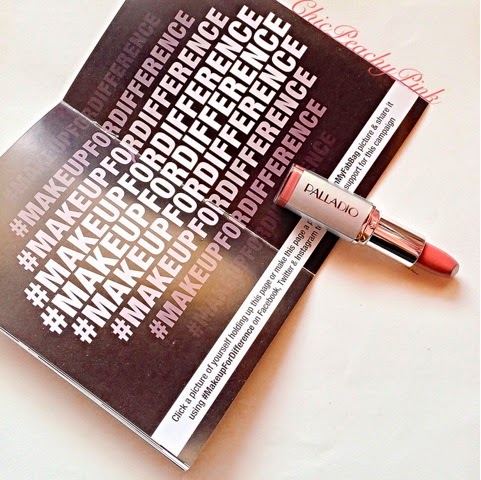 ChicPeachyPink
#MAKEUPFORDIFFERENCE
#MAKEUPFORDIFFERENCE
#MAKEUPFORDIFFERENCE
#MAKEUPFORDIFFERENCE
#MAKEUPFORDIFFERENCE
#MAKEUPFORDIFFERENCE
#MAKEUPFOR
Click a picture of yourself holding up this page or make this page a MyFabBag picture & share it
using #MakeupForDifference on Facebook, Twitter & Instagram support for this campaign
PALLADIO